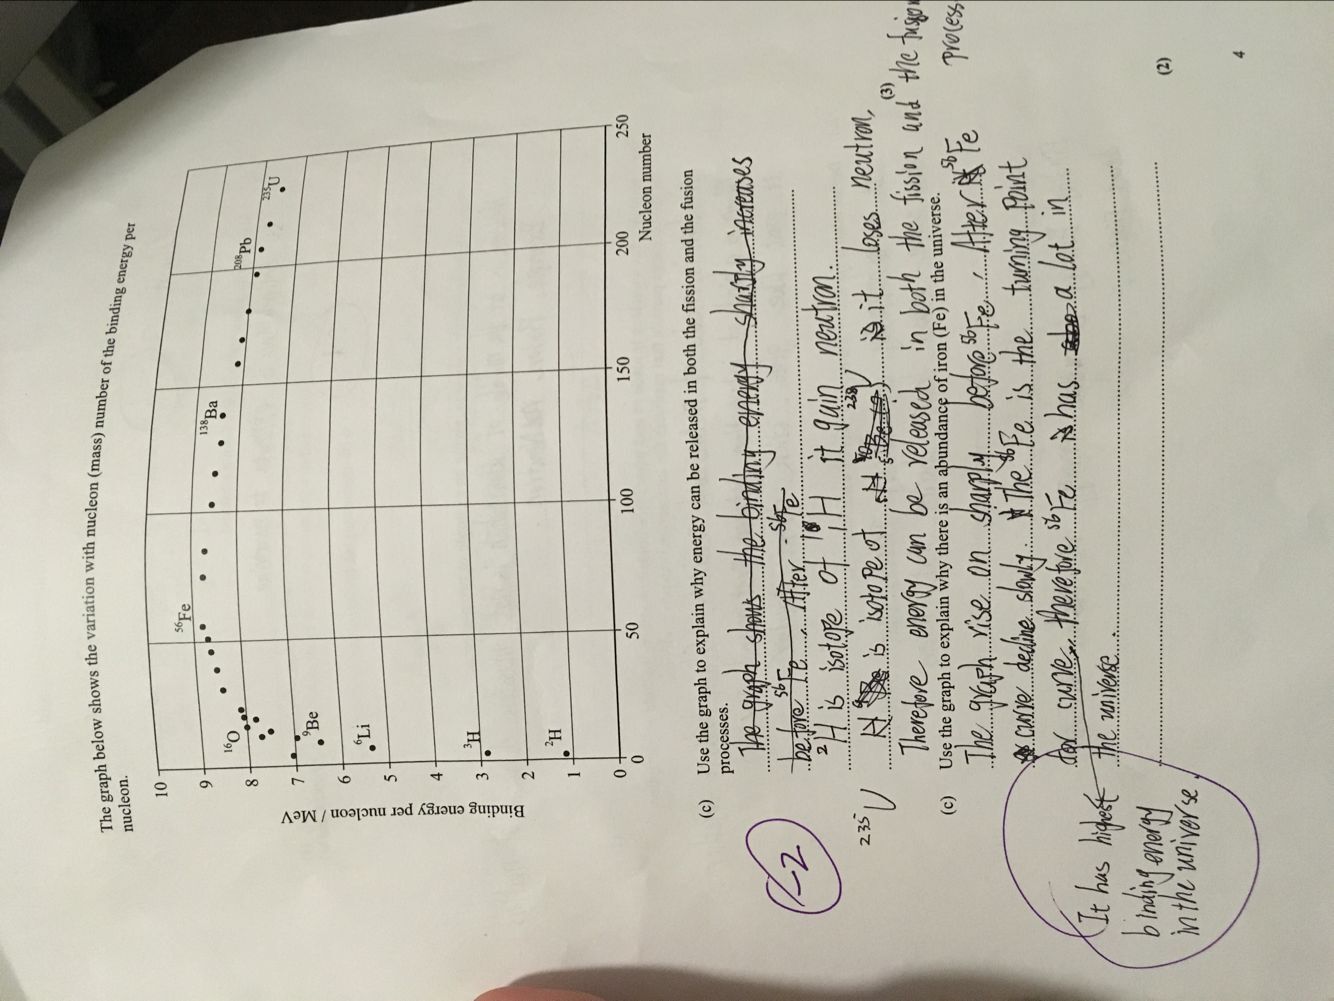 The graph below shows the variation with nucleon (mass) number of the binding energy per
nucleon.
10
9
8
7
6
5
4
3
2
1
0
Binding energy per nucleon / MeV
¹⁶O
⁵⁶Fe
¹³⁸Ba
²⁰⁸Pb
²³⁵U
⁹Be
⁶Li
³H
²H
0
50
100
150
200
250
Nucleon number
(c) Use the graph to explain why energy can be released in both the fission and the fusion
processes.
The graph shows the binding energy sharply increases
before ⁵⁶Fe. After ⁵⁶Fe
²H is isotope of H it gain neutron.
²³⁵U is isotope of ²³⁸U it loses neutron,
(3)
Therefore energy can be released in both the fission and the fusion
process
-2
(c) Use the graph to explain why there is an abundance of iron (Fe) in the universe.
The graph rise on sharply before ⁵⁶Fe, After ⁵⁶Fe
curve decline slowly. The ⁵⁶Fe is the turning point
for curve, therefore ⁵⁶Fe has a lot in
the universe.
It has highest
binding energy
in the universe.
(2)
4